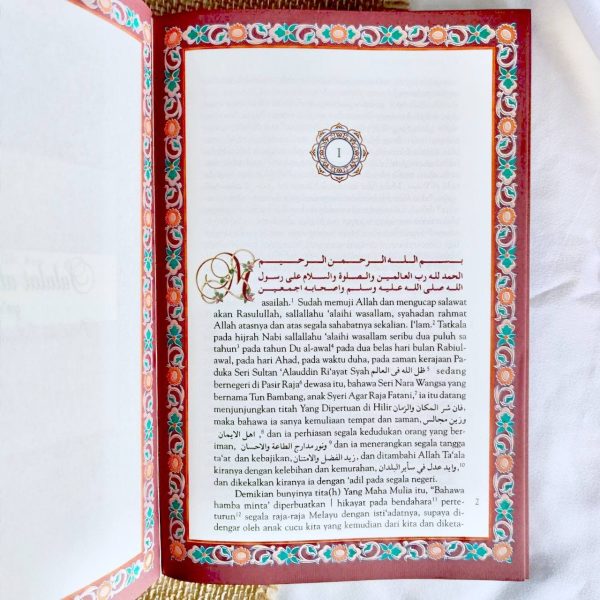 I
بسم الله الرحمن الرحيم
الحمد لله رب العالمين والصلوة والسلام على رسول
الله صلى الله عليه وسلم واصحابه اجمعين
Masailah.¹ Sudah memuji Allah dan mengucap salawat
akan Rasulullah, sallallahu ‘alaihi wasallam, syahadan rahmat
Allah atasnya dan atas segala sahabatnya sekalian. I‘lam.² Tatkala
pada hijrah Nabi sallallahu ‘alaihi wasallam seribu dua puluh sa
tahun³ pada tahun Du al-awal⁴ pada dua belas hari bulan Rabiul-
awal, pada hari Ahad, pada waktu duha, pada zaman kerajaan Pa-
duka Seri Sultan ‘Alauddin Ri‘ayat Syah ظل الله فى العالم⁵ sedang
bernegeri di Pasir Raja⁶ dewasa itu, bahawa Seri Nara Wangsa yang
bernama Tun Bambang, anak Syeri Agar Raja Fatani,⁷ ia itu datang
menjunjungkan titah Yang Dipertuan di Hilir فان شر المكان والزمان,
maka bahawa ia sanya kemuliaan tempat dan zaman, وزين مجالس
اهل الايمان,⁸ dan ia perhiasan segala kedudukan orang yang ber-
iman, ونور مدارج الطاعة والاحسان⁹ dan ia menerangkan segala tangga
ta‘at dan kebajikan, زيد الفضل والامتنان, dan ditambahi Allah Ta‘ala
kiranya dengan kelebihan dan kemurahan, وايد عدل في سأير البلدان,¹⁰
dan dikekalkan kiranya ia dengan ‘adil pada segala negeri.
Demikian bunyinya tita(h) Yang Maha Mulia itu, “Bahawa
hamba minta’ diperbuatkan | hikayat pada bendahara¹¹ perte- 2
turun¹² segala raja-raja Melayu dengan isti‘adatnya, supaya di-
dengar oleh anak cucu kita yang kemudian dari kita dan diketa-